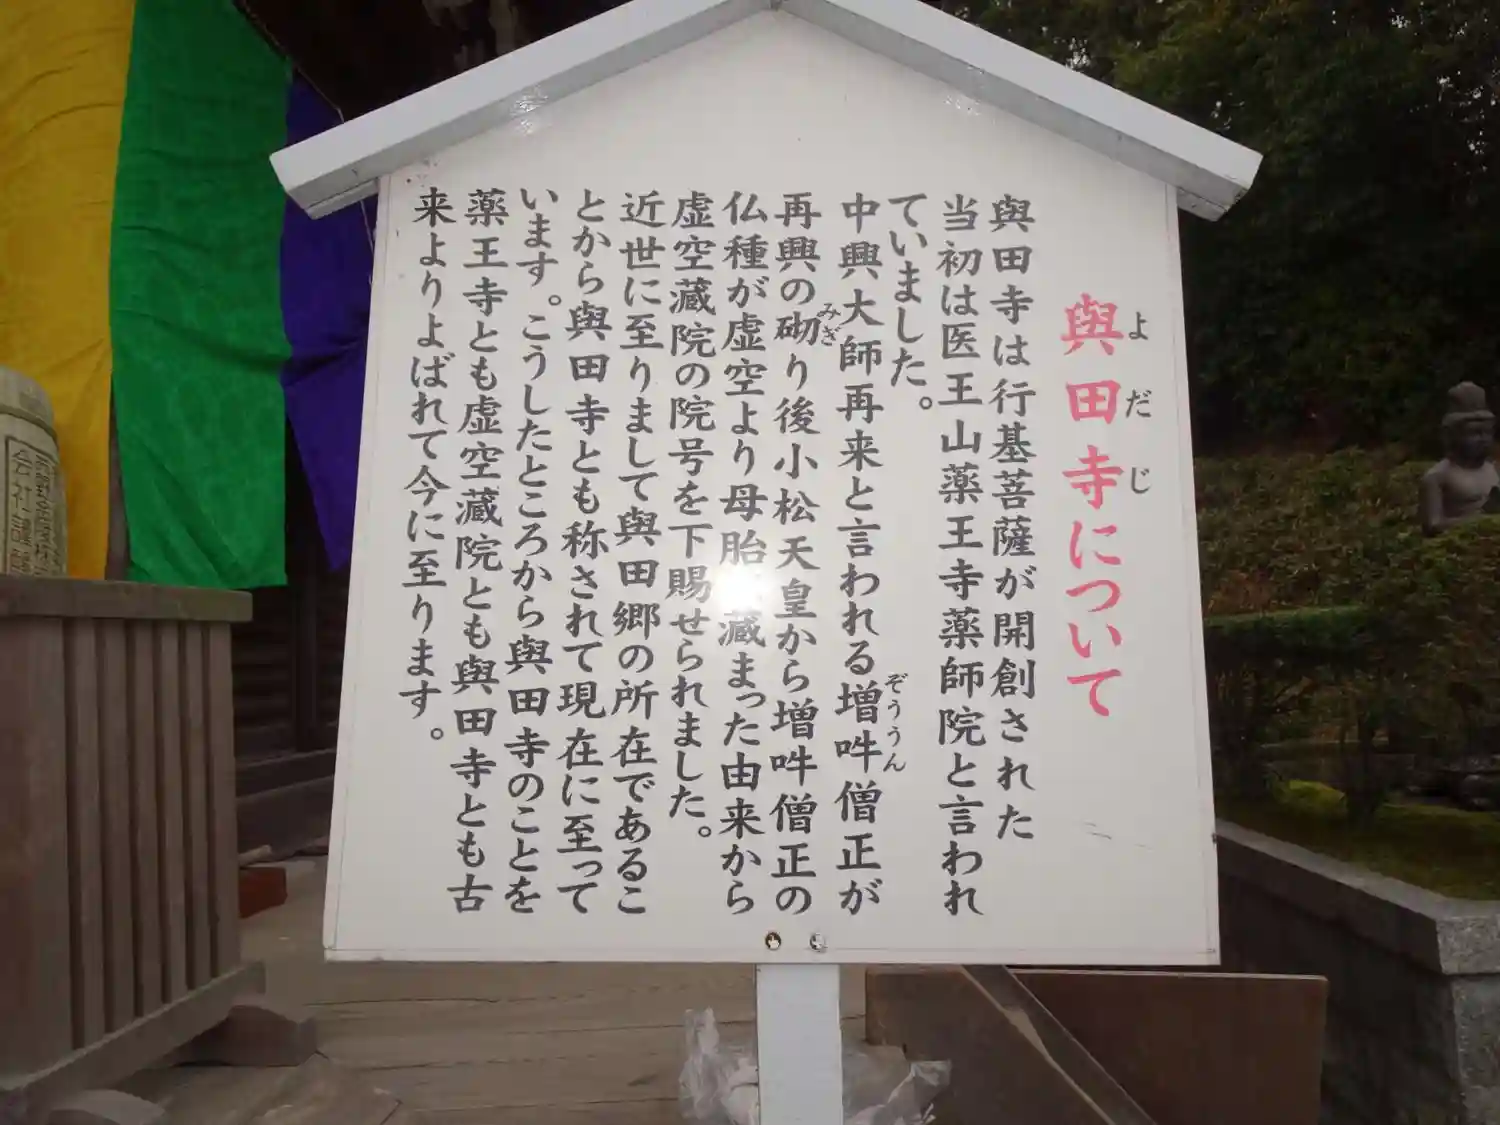 與田寺について
よだじ
與田寺は行基菩薩が開創された
当初は医王山薬王寺薬師院と言われ
ていました。
中興大師再来と言われる増吽僧正が
ぞううん
再興の砌り後小松天皇から増吽僧正の
みぎ
仏種が虚空より母胎蔵まった由来から
虚空蔵院の院号を下賜せられました。
近世に至りまして與田郷の所在であるこ
とから與田寺とも称されて現在に至って
います。こうしたところから與田寺のことを
薬王寺とも虚空蔵院とも與田寺とも古
来よりよばれて今に至ります。
会社